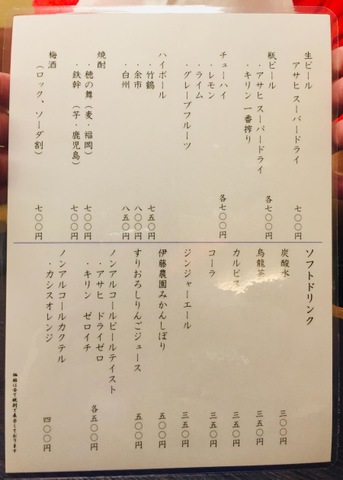 生ビール
アサヒ スーパードライ 七〇〇円
瓶ビール
・アサヒ スーパードライ
・キリン 一番搾り 各七〇〇円
チューハイ
・レモン
・ライム
・グレープフルーツ 各七〇〇円
ハイボール
・竹鶴 七五〇円
・余市 八〇〇円
・白州 八五〇円
焼酎
・穂の舞(麦・福岡) 七〇〇円
・鉄幹 (芋・鹿児島) 七〇〇円
梅酒
(ロック、ソーダ割) 七〇〇円
ソフトドリンク
炭酸水 三〇〇円
烏龍茶 三五〇円
カルピス 三五〇円
コーラ 三五〇円
ジンジャーエール 三五〇円
伊藤農園みかんしぼり 五〇〇円
すりおろしりんごジュース 五〇〇円
ノンアルコールビールテイスト
・アサヒ ドライゼロ
・キリン ゼロイチ 各五〇〇円
ノンアルコールカクテル
・カシスオレンジ 四〇〇円
価格は全て税別で表示しております